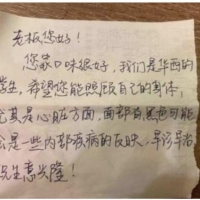 老板您好！
您家口味很好，我们是华西的
学生，希望您能照顾自己的身体，
尤其是心脏方面，面部黄黑色可能
会是一些内部疾病的反映，早诊早治，
祝生意兴隆！